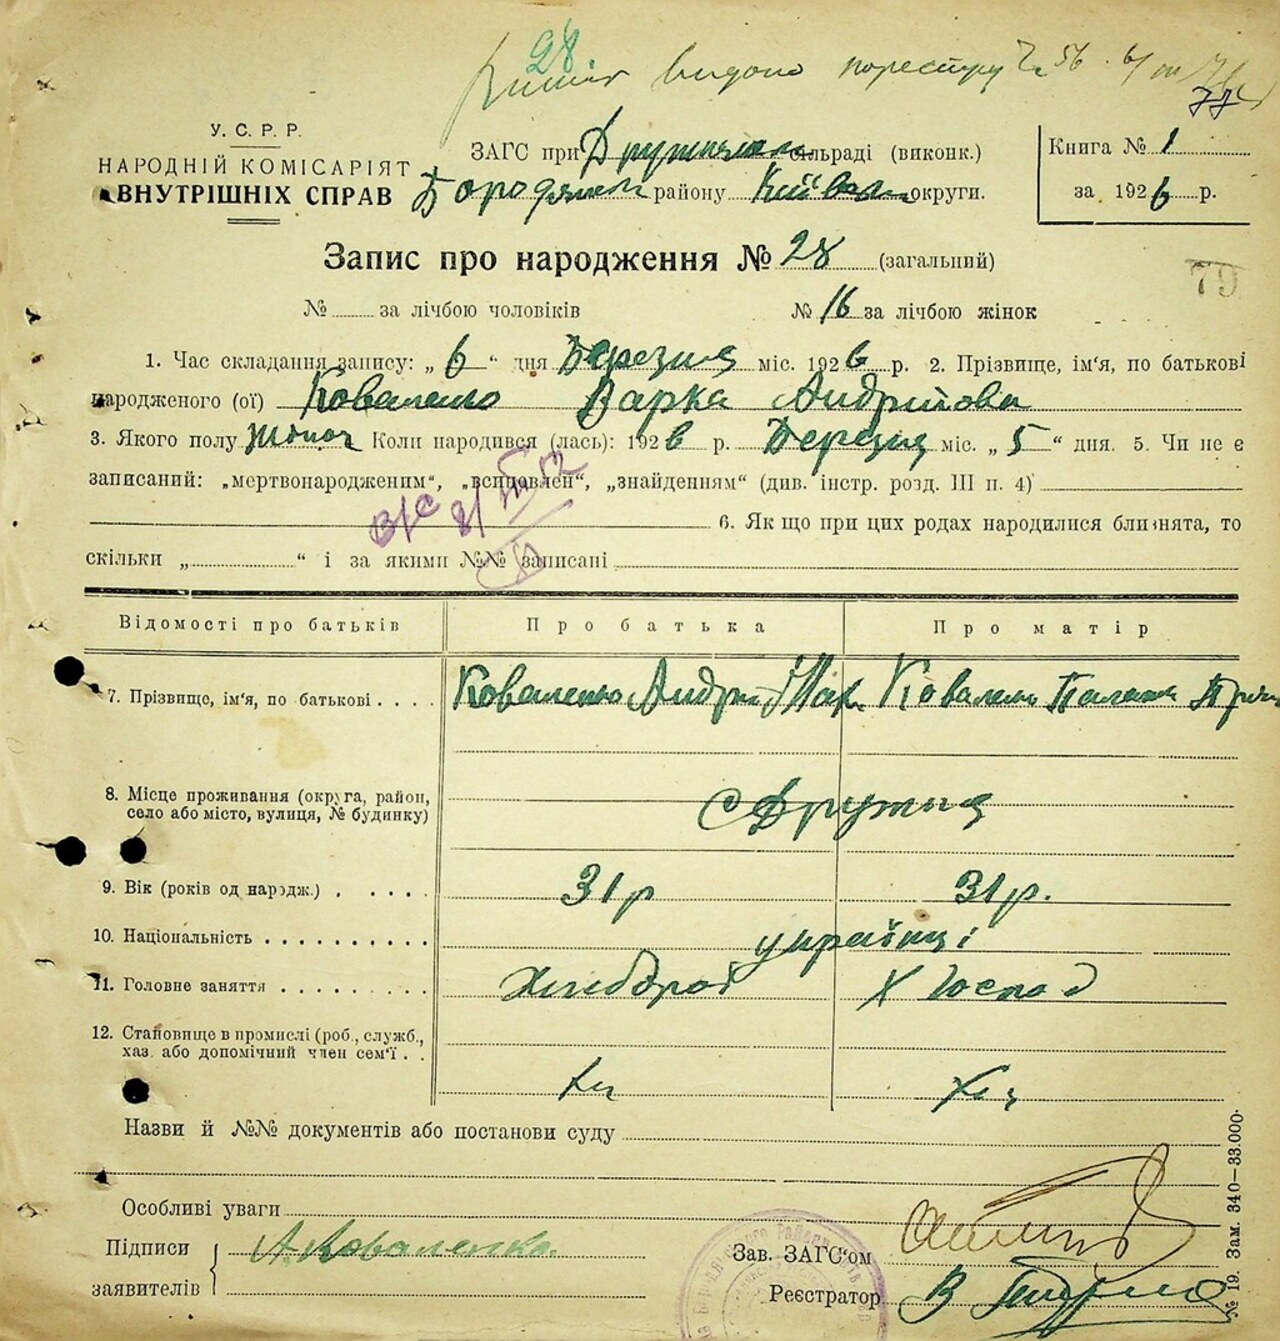 28
видано по реєстру
У. С. Р. Р.
НАРОДНІЙ КОМІСАРІЯТ
ВНУТРІШНІХ СПРАВ
ЗАГС при сільраді (виконк.)
району округи.
Книга № 1
за 1926 р.
Запис про народження № 28 (загальний)
79
№ за лічбою чоловіків № 16 за лічбою жінок
1. Час складання запису: „ 6 “ дня Березня міс. 1926 р. 2. Прізвище, ім'я, по батькові
народженого (ої) Коваленко Варка Андрійова
3. Якого полу Коли народився (лась): 1926 р. Березня міс. „ 5 “ дня. 5. Чи не є
записаний: „мертвонародженим“, „всиновлен“, „знайденням“ (див. інстр. розд. III п. 4)
6. Як що при цих родах народилися близнята, то
скільки „ “ і за якими №№ записані
Відомості про батьків Про батька Про матір
7. Прізвище, ім'я, по батькові Коваленко Андрій
8. Місце проживання (округа, район,
село або місто, вулиця, № будинку) с Дружня
9. Вік (років од народж.) 31 р 31 р.
10. Національність українці
11. Головне заняття Хлібороб
12. Становище в промислі (роб., служб.,
хаз. або допомічний член сем'ї
Назви й №№ документів або постанови суду
Особливі уваги
Підписи А. Коваленко
заявителів
Зав. ЗАГС'ом
Реєстратор
№ 19. Зам. 340—33.000.